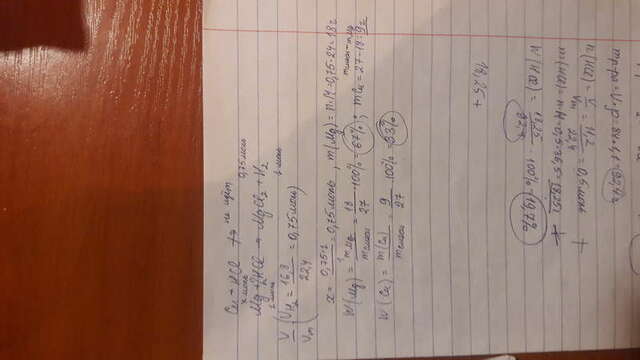 Cu + HCl ↛ не идёт
x моль 0,75 моль
Mg + 2HCl → MgCl₂ + H₂
1 моль 1 моль
V/Vm (νH₂ = 16,8/22,4 = 0,75 моль)
x = 0,75·1/1 = 0,75 моль, m(Mg) = n·M = 0,75·24 = 18 г
W(Mg) = mMg/mсмеси = 18/27 · 100% = 67%; mCu = 27-18 = 9г
W(Cu) = m(Cu)/mсмеси = 9/27 · 100% = 33%
mр-ра = V·ρ = 84·1,1 = 92,4г
n(HCl) = V/Vm = 11,2/22,4 = 0,5 моль +
m(HCl) = n·M = 0,5·36,5 = 18,25г +
W(HCl) = 18,25/92,4 · 100% = 19,7%
18,25 +